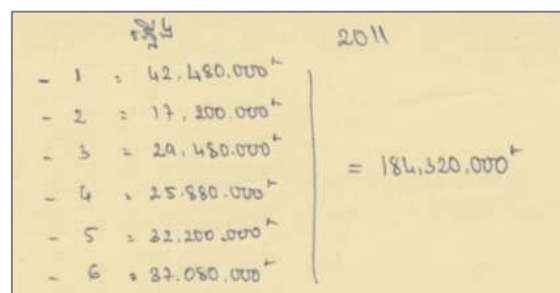 2011
- 1 = 42.480.000៛
- 2 = 17.200.000៛
- 3 = 29.480.000៛
- 4 = 25.880.000៛
- 5 = 32.200.000៛
- 6 = 37.080.000៛
= 184.320.000៛